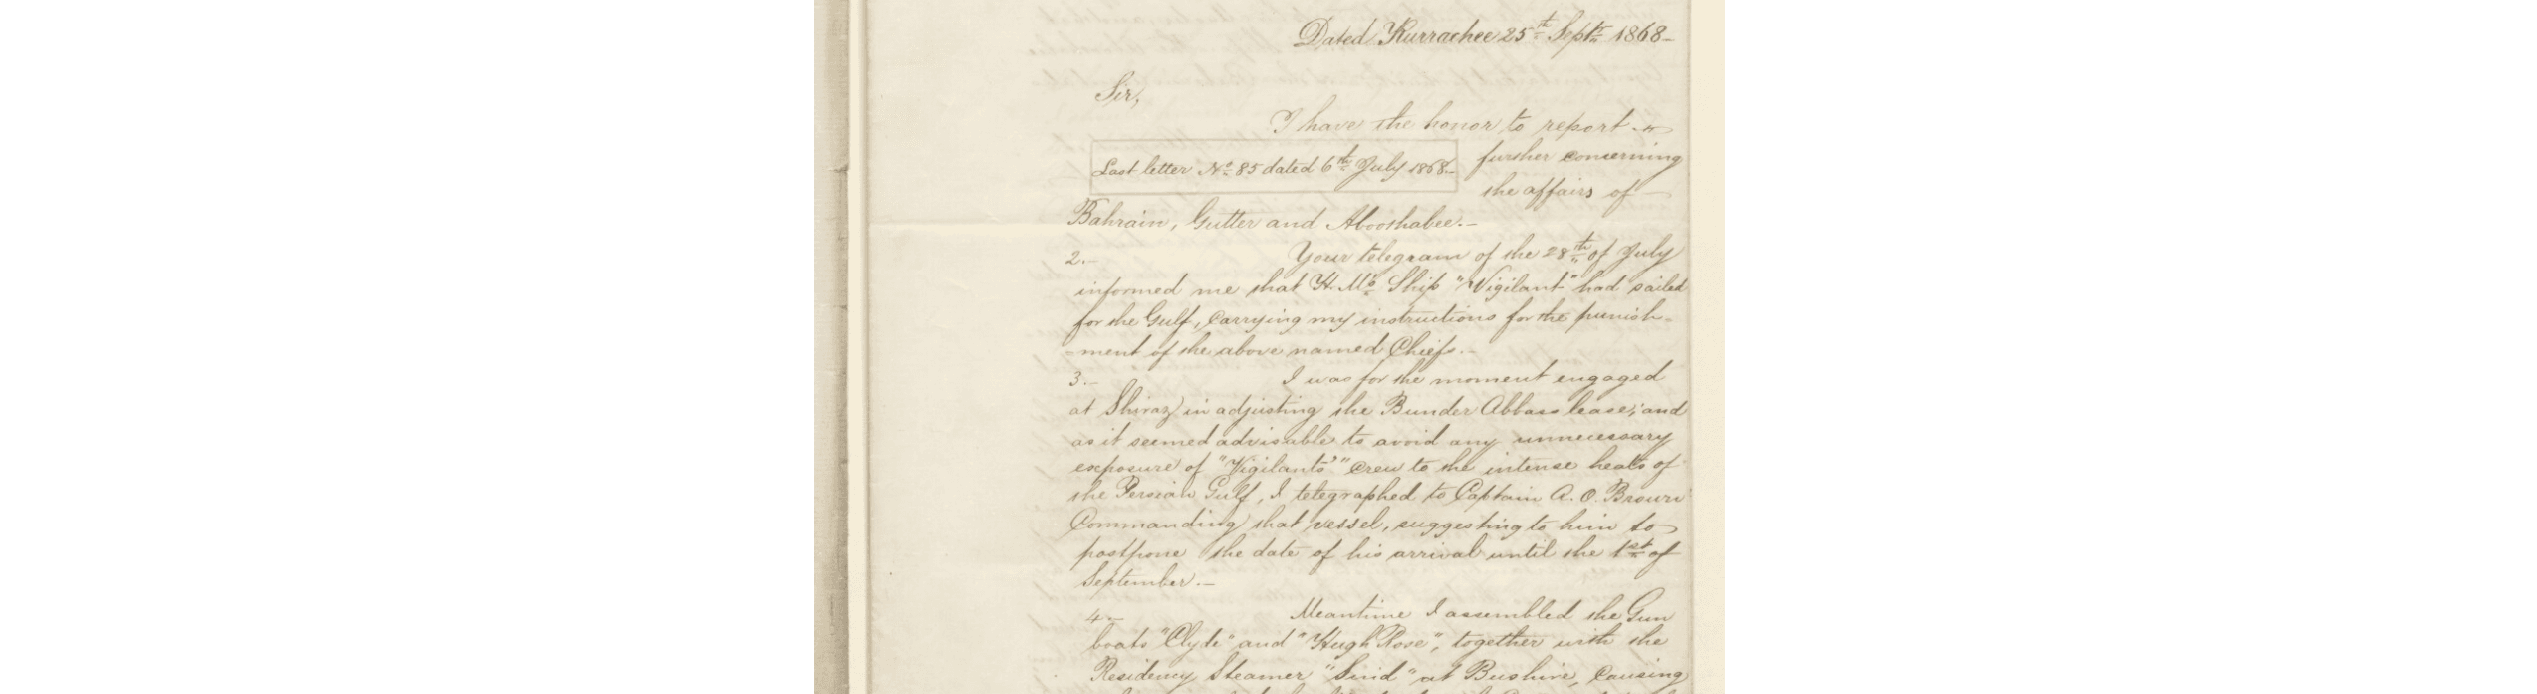 Dated Kurrachee 25th Septr 1868—
Sir,
I have the honor to report
Last letter No 85 dated 6th July 1868.—
further concerning
the affairs of
Bahrain, Gutter and Abooshabee.—
2.— Your telegram of the 28th of July
informed me that H. Ms Ship "Vigilant" had sailed
for the Gulf, carrying my instructions for the punish-
=ment of the above named Chiefs.—
3.— I was for the moment engaged
at Shiraz in adjusting the Bunder Abbass lease; and
as it seemed advisable to avoid any unnecessary
exposure of "Vigilants'" crew to the intense heats of
the Persian Gulf, I telegraphed to Captain A. O. Brown
Commanding that vessel, suggesting to him to
postpone the date of his arrival until the 1st of
September.—
4.— Meantime I assembled the Gun
boats "Clyde" and "Hugh Rose", together with the
Residency Steamer "Sind" at Bushire, causing